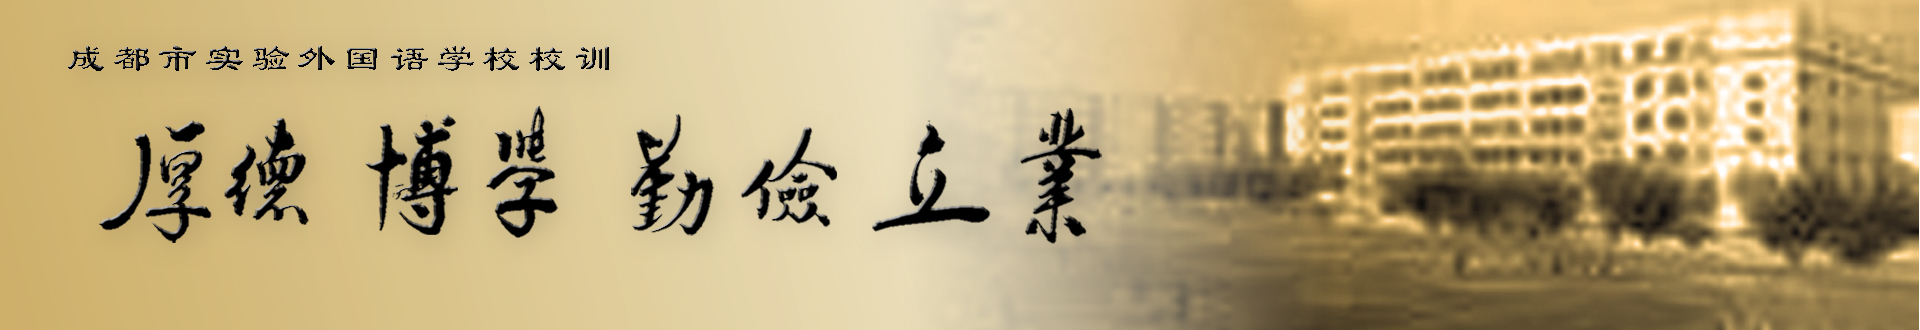 成都市实验外国语学校校训
厚德 博學 勤儉 立業